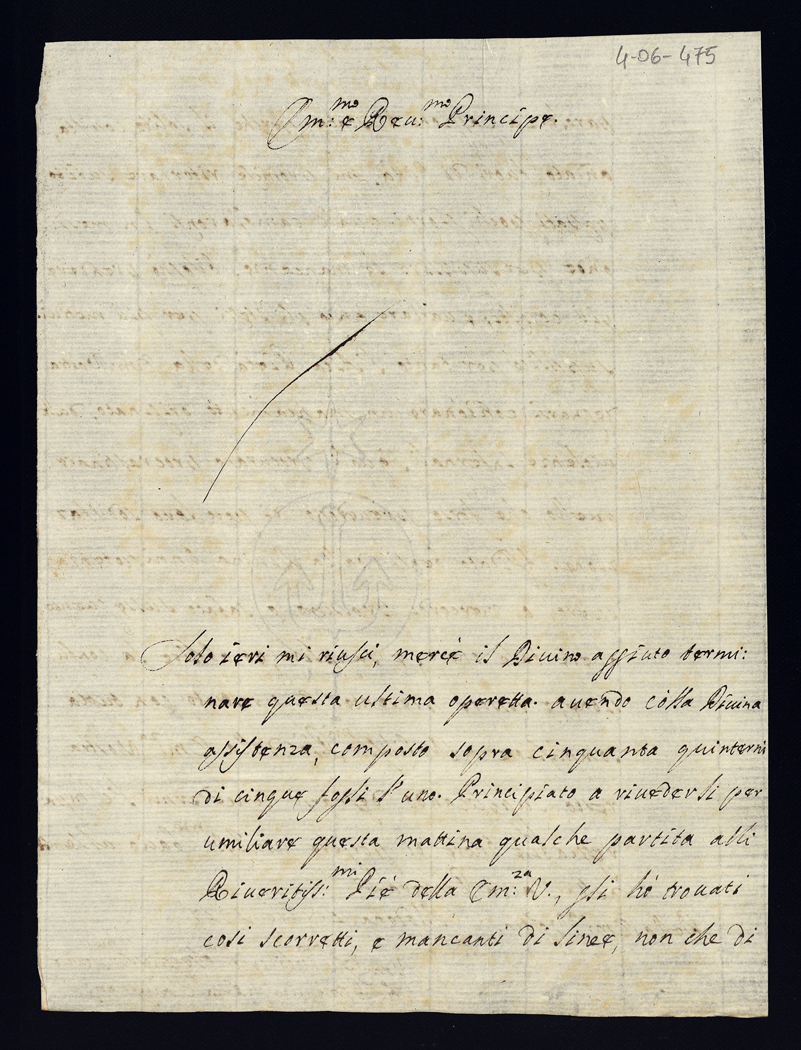 4-06-475
Em:mo e Reu:mo Principe.
Solo ieri mi riusci, mercè il Divino aggiuto termi:
nare questa ultima operetta. avendo colla Divina
assistenza, composto sopra cinquanta quinterni
di cinque fogli l'uno. Principiato a rivedersi per
umiliare questa mattina qualche partita alli
Riveritiss:mi Piè della Em:za V., gli hò trovati
cosi scorretti, e mancanti di linee, non che di